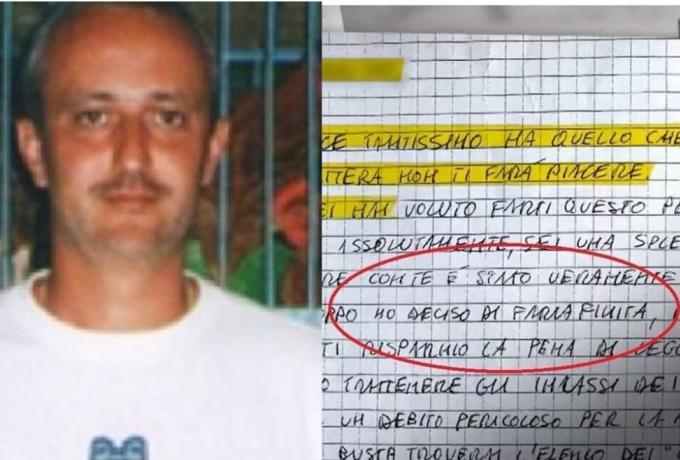 CE TANTISSIMO HA QUELLO CHE
TTERA NON TI FARÀ PIACERE.
EI HAI VOLUTO FARMI QUESTO
ASSOLUTAMENTE, SEI UNA SPLE
RE CON TE E SONO VERAMENTE
PPO HO DECISO DI FARLA FINITA,
TI RISPARMIO LA PENA DI
O TRATTENERE GLI INCASSI DEI
UN DEBITO PERICOLOSO PER LA
BUSTA TROVERAI L'ELENCO DEI "